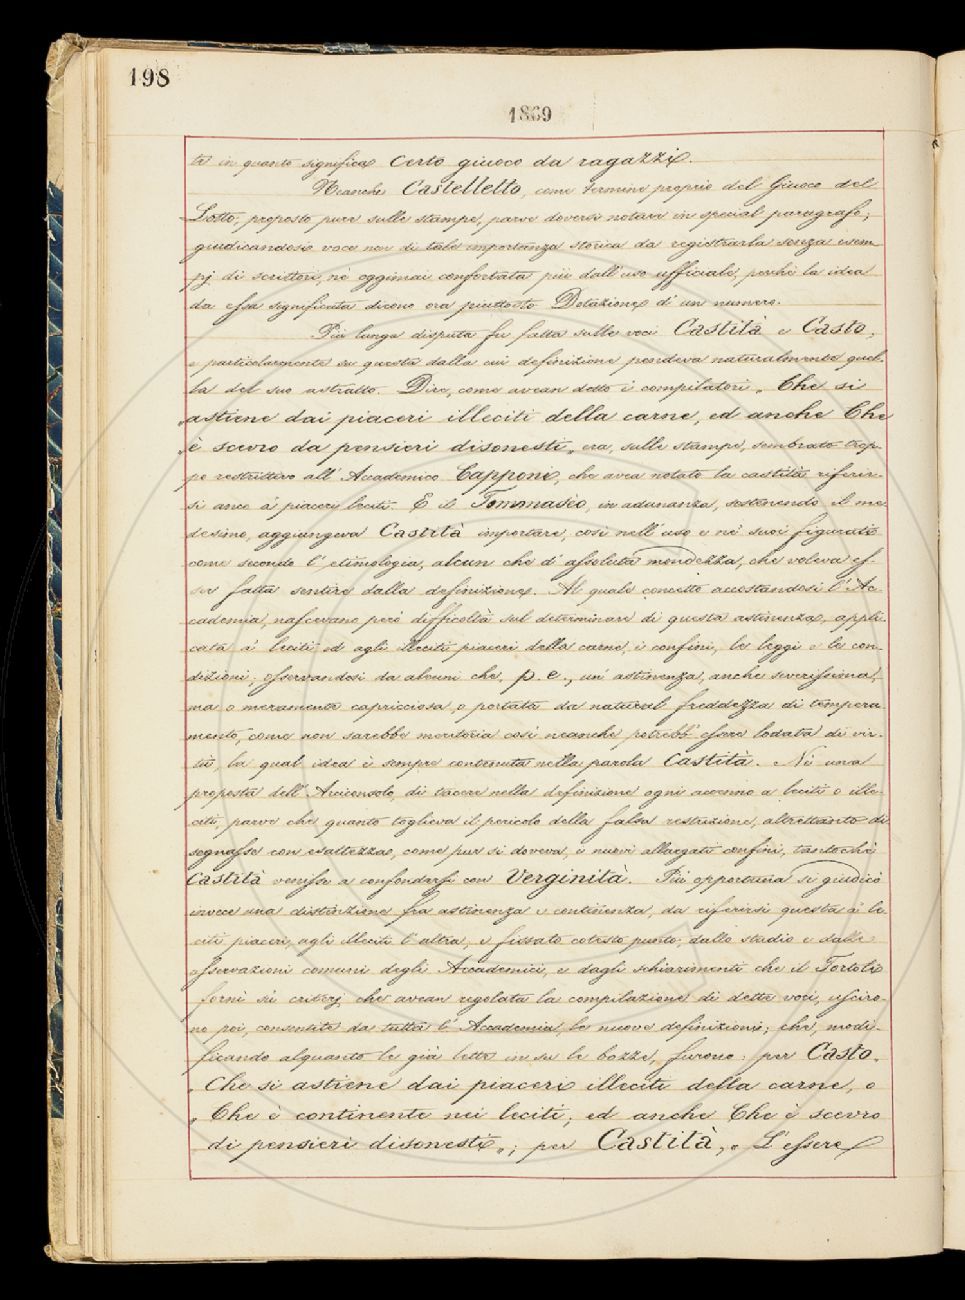 198
1869
te in quanto significa Certo giuoco da ragazzi.
Neanche Castelletto, come termine proprio del Giuoco del
Lotto, proposto pure sulle stampe, parve doversi notare in special paragrafo;
giudicandosi voce non di tale importanza storica da registrarla senza esem
pj di scrittori, nè oggimai confortata più dall'uso ufficiale, perchè la idea
da essa significata dicono ora piuttosto Dotazione d'un numero.
Più lunga disputa fu fatta sulle voci Castità e Casto,
e particolarmente su questa dalla cui definizione pendeva naturalmente quel-
la del suo astratto. Dire, come avean detto i compilatori „ Che si
„ astiene dai piaceri illeciti della carne, ed anche Che
„ è scevro da pensieri disonesti „ era, sulle stampe, sembrato trop-
po restrittivo all'Accademico Capponi, che avea notato la castità riferir-
si anco a' piaceri leciti. E il Tommaseo, in adunanza, sostenendo il me
desimo, aggiungeva Castità importare, così nell'uso e ne' suoi figurati
come secondo l'etimologia, alcun che d'assoluta mondezza, che voleva es-
ser fatta sentire dalla definizione. Al quale concetto accostandosi l'Ac-
cademia, nascevano però difficoltà sul determinare di questa astinenza, appli-
cata a' leciti ed agli illeciti piaceri della carne, i confini, le leggi e le con-
dizioni; osservandosi da alcuni che, p. e., un'astinenza, anche severissima,
ma o meramente capricciosa, o portata da natural freddezza di tempera
mento, come non sarebbe meritoria così neanche potrebb'essere lodata di vir-
tù, la qual idea è sempre contenuta nella parola Castità. Nè una
proposta dell'Arciconsolo, di tacere nella definizione ogni accenno a leciti o ille-
citi, parve che quanto toglieva il pericolo della falsa restrizione, altrettanto di
segnasse con esattezza, come pur si doveva, i nuovi allargati confini, tantochè
Castità venisse a confondersi con Verginità. Più opportuna si giudicò
invece una distinzione fra astinenza e continenza, da riferirsi questa a' le-
citi piaceri, agli illeciti l'altra, e fissato cotesto punto, dallo studio e dalle
osservazioni comuni degli Accademici, e dagli schiarimenti che il Tortoli
fornì su' criterj che avean regolata la compilazione di dette voci, usciro-
no poi, consentite da tutta l'Accademia, le nuove definizioni; che, modi-
ficando alquanto le già lette in su le bozze, furono: per Casto,
„ Che si astiene dai piaceri illeciti della carne, o
„ Che è continente nei leciti; ed anche Che è scevro
di pensieri disonesti „; per Castità, „ L'essere